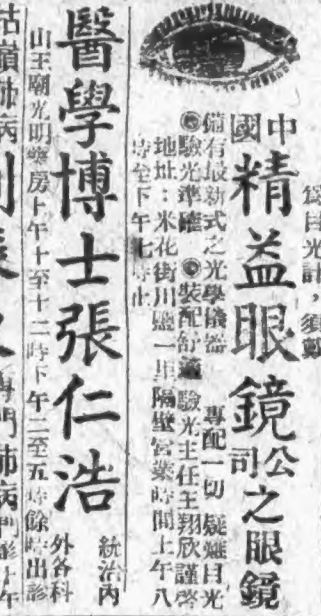 爲目光計，須戴
中國
精益眼鏡
公司
之眼鏡
備有最新式之光學儀器 專配一切疑難目光
◎驗光準確 ◎裝配舒適 驗光主任王翔欣謹啓
地址：米花街川鹽一里隔壁營業時間上午八
時至下午七時止
醫學博士張仁浩
統治內
外各科
山王廟光明藥房上午十至十二時下午二至五時餘時出診
牯嶺肺病
專門肺病門診上午